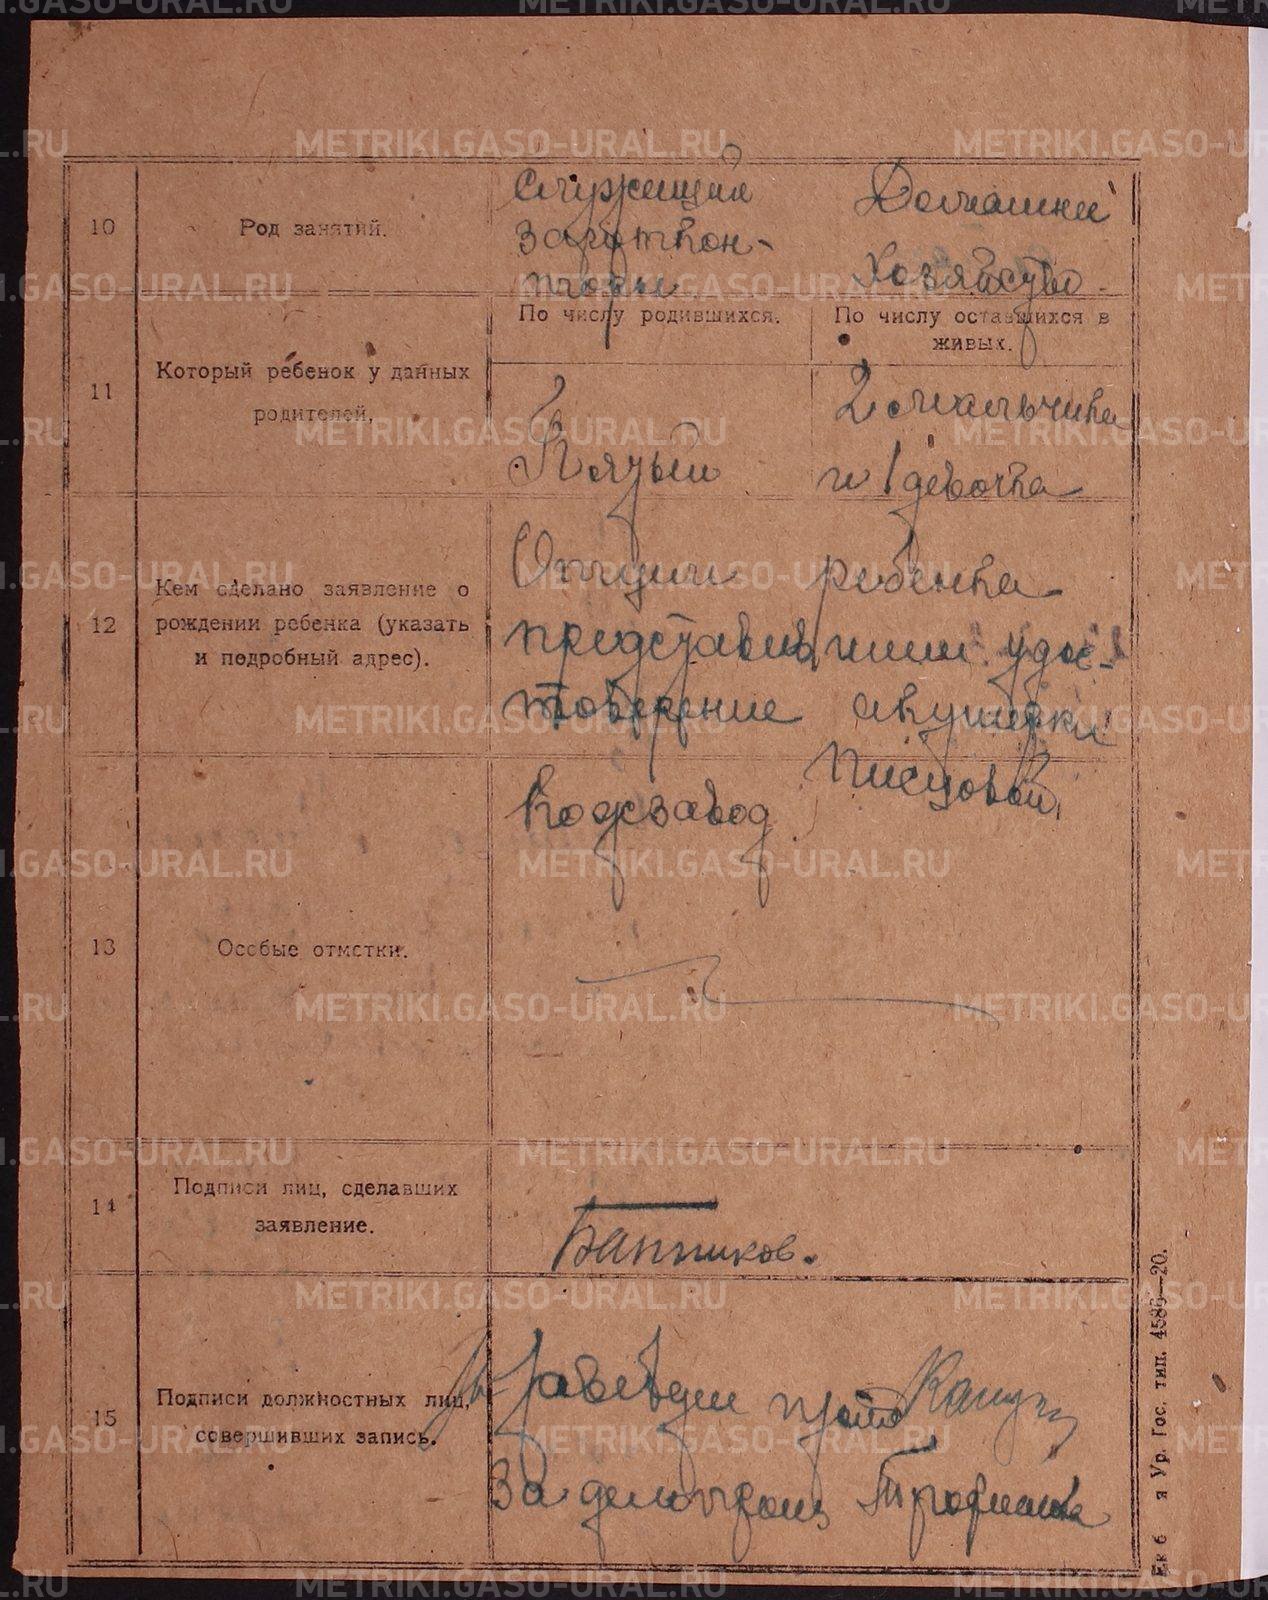 10
Род занятий.
Служащий
Заготкон-
торы
Домашнее
хозяйство.
11
Который ребенок у данных
родителей.
По числу родившихся.
Пятый
По числу оставшихся в
живых.
2 мальчика
и 1 девочка
12
Кем сделано заявление о
рождении ребенка (указать
и подробный адрес).
Отцом ребенка
представившим удос-
товерение акушерки
Писцовой
Кожзавод
13
Особые отметки.
14
Подписи лиц, сделавших
заявление.
Банников.
15
Подписи должностных лиц,
совершивших запись.
Заведующ
За делопроиз
METRIKI.GASO-URAL.RU
Ур. Гос. тип. 4586—20.